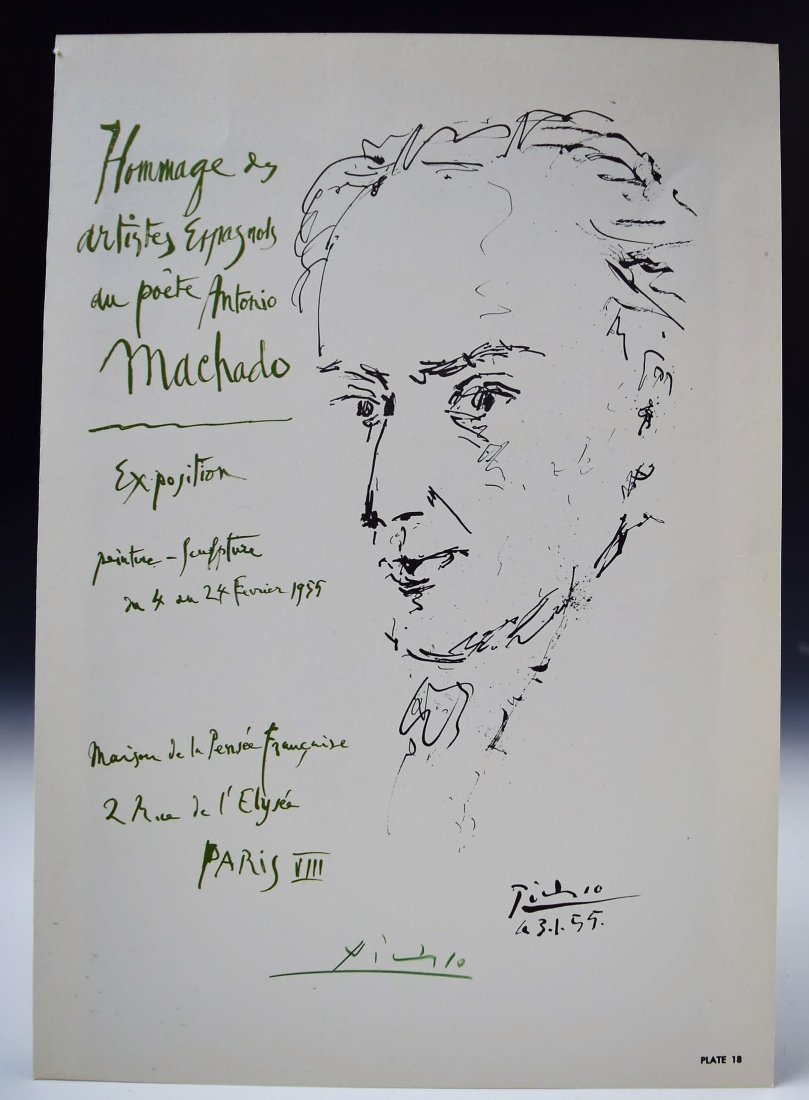 Hommage des
artistes Espagnols
au poète Antonio
Machado
Exposition
peinture - Sculpture
du 4 au 24 Fevrier 1955
Maison de la Pensée Française
2 Rue de l'Elysée
PARIS VIII
Picasso
le 3.1.55.
Picasso
PLATE 18